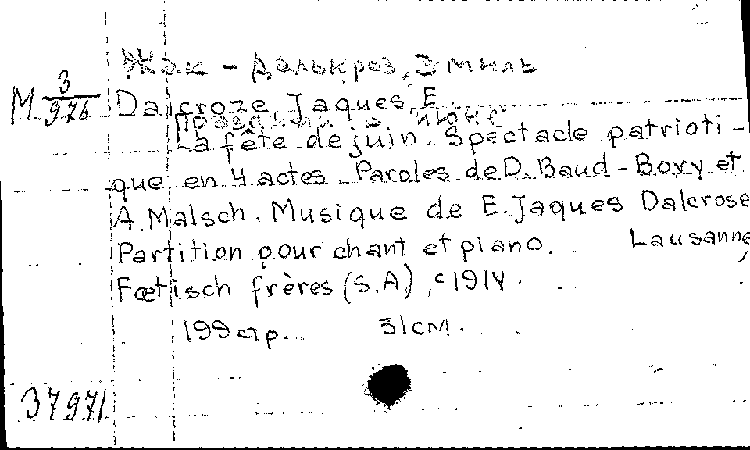 Жак - Далькроз, Эмиль
М 3/976 Dalcroze, Jaques, E.
в июне
La fête de juin. Spectacle patrioti-
que en 4 actes. Paroles de D. Baud-Bovy et
A. Malsch. Musique de E. Jaques Dalcrose
Partition pour chant et piano. Lausanne,
Fœtisch frères (S.A), c1914.
199 стр. 31 см.
37971